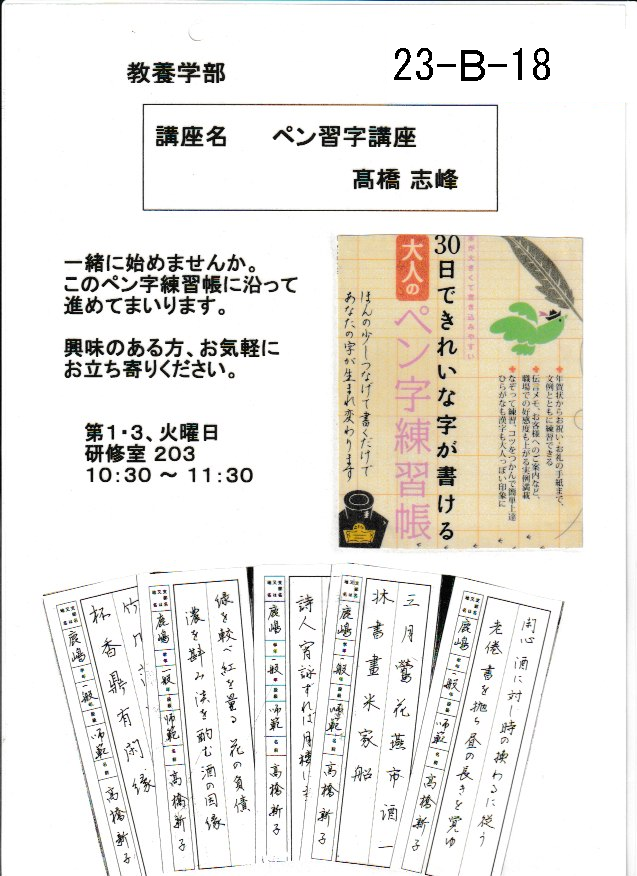 23-B-18
教養学部
講座名 ペン習字講座
髙橋 志峰
一緒に始めませんか。
このペン字練習帳に沿って
進めてまいります。
興味のある方、お気軽に
お立ち寄りください。
第1・3、火曜日
研修室 203
10:30 ~ 11:30
字が大きくて書き込みやすい
30日できれいな字が書ける
大人の
ペン字練習帳
ほんの少しつなげて書くだけで
あなたの字が生まれ変わります
年賀状からお祝い・お礼の手紙まで、
文例とともに練習できる
伝言メモ、お客様へのご案内など、
職場での好感度も上がる実例満載
なぞって練習、コツをつかんで簡単上達
ひらがなも漢字も大人っぽい印象に
閑心 酒に対し 時の換わるに従う
老倦 書を抛ち 昼の長きを覚ゆ
鹿嶋 一般 師範 高橋新子
三月鶯花燕市酒一
牀書畫米家船
鹿嶋 一般 師範 高橋新子
詩人 宵詠ずれば月楼に
鹿嶋 一般 師範 高橋新子
緑を較べ紅を量る 花の負債
濃を斟み淡を酌む 酒の因縁
鹿嶋 一般 師範 高橋新子
杯香鼎有閑縁
鹿嶋 一般 師範 高橋新子